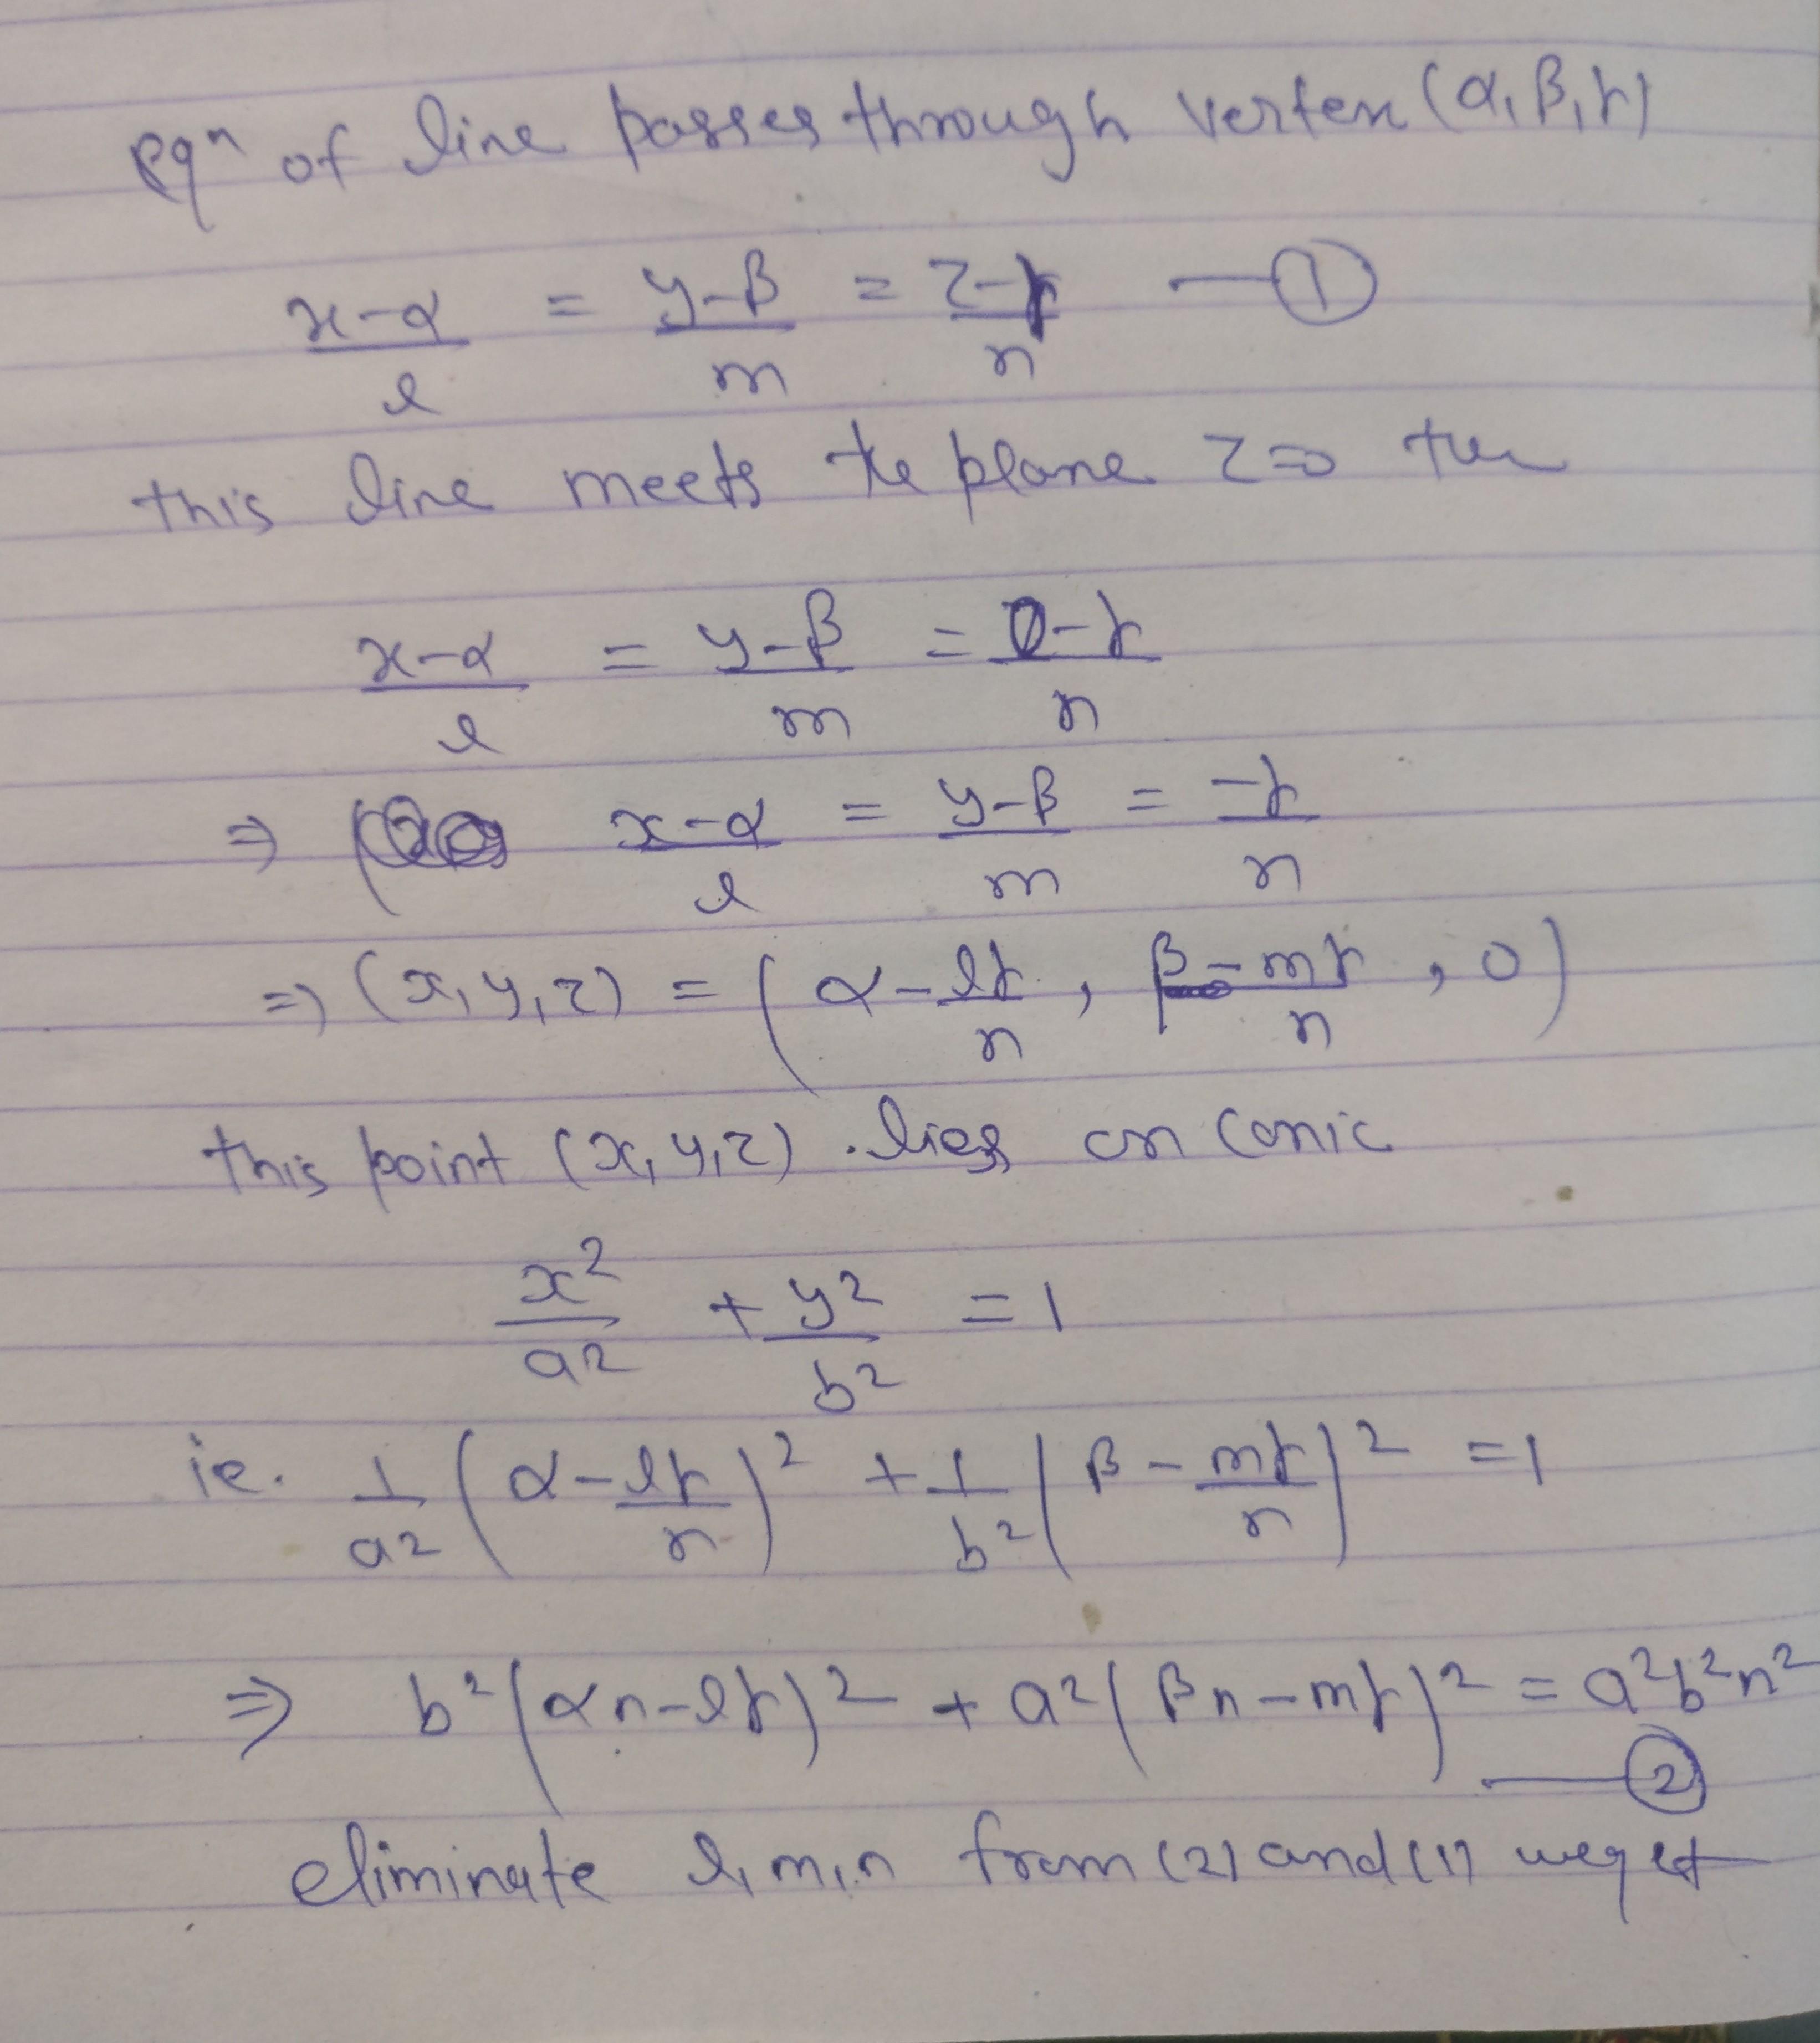 eqⁿ of line passes through vertex (α, β, γ)
(x-α)/l = (y-β)/m = (z-γ)/n — ①
this line meets the plane z=0 then
(x-α)/l = (y-β)/m = (0-γ)/n
⇒ (x-α)/l = (y-β)/m = -γ/n
⇒ (x, y, z) = (α - lγ/n, β - mγ/n, 0)
this point (x, y, z) lies on conic
x²/a² + y²/b² = 1
ie. 1/a² (α - lγ/n)² + 1/b² (β - mγ/n)² = 1
⇒ b²(αn - lγ)² + a²(βn - mγ)² = a²b²n²
— ②
eliminate l, m, n from (2) and (1) we get